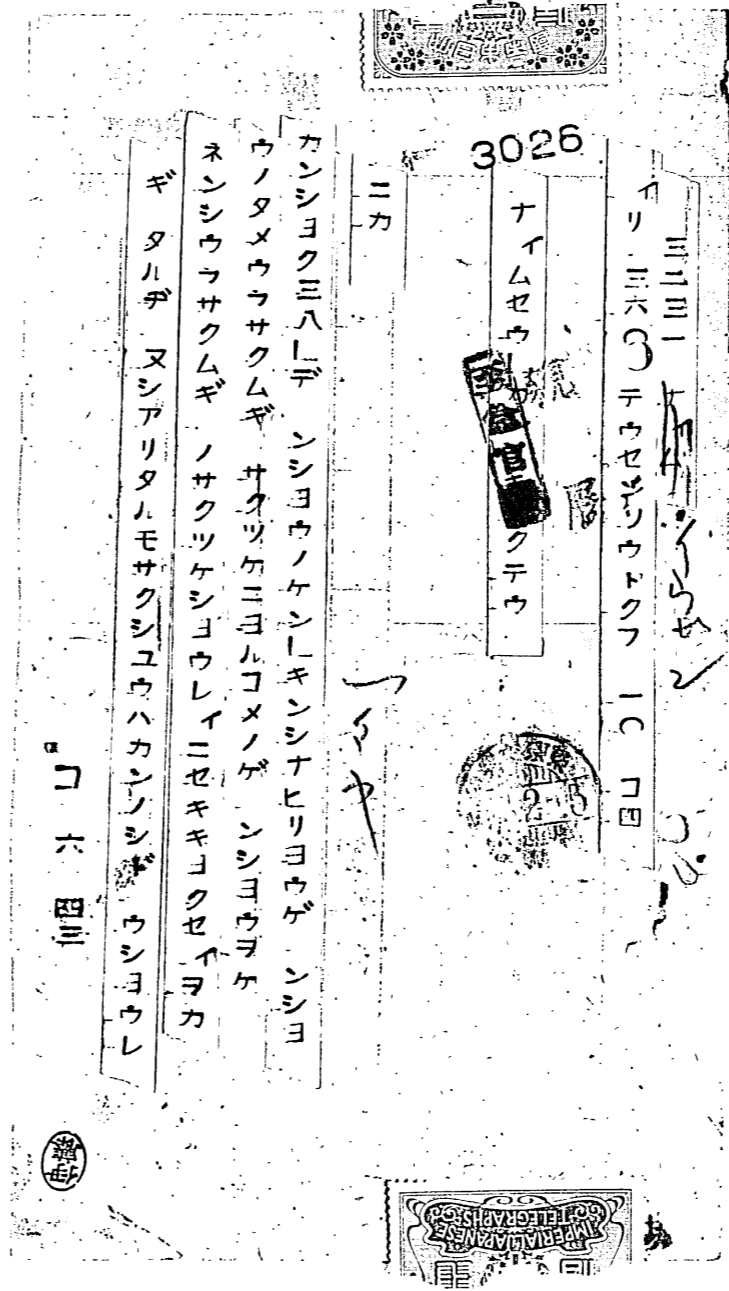 3026
三二三一
イリ 三六〇 テウセンソウトクフ 一〇 コ四
ナイムセウ クテウ
ニカ
カンシヨク三八」デ ンシヨウノケン」キンシナヒリヨウゲ ンシヨ
ウノタメウラサクムギ サクツケニヨルコメノゲ ンシヨウヲケ
ネンシウラサクムギ ノサクツケシヨウレイニセキキヨクセイヲカ
ギ タルヂ ヌシアリタルモサクシユウハカンノシド ウシヨウレ
コ 六 四三
2 3
伊藤
IMPERIAL JAPANESE
TELEGRAPHS